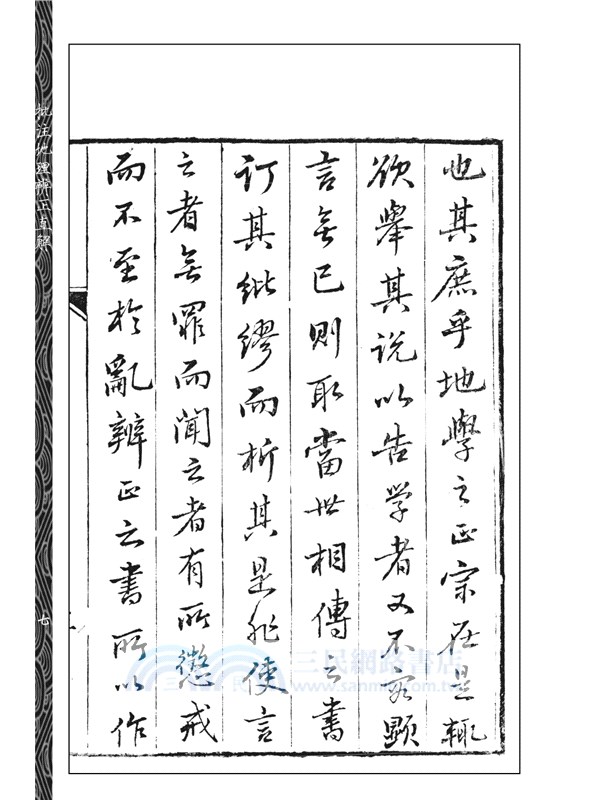 也其庶乎地學之正宗在是輒
欲舉其說以告学者又不容顯
言無已則取當世相傳之書
訂其紕繆而析其是非使言
之者無罪而闻之者有所懲戒
而不至於亂辨正之書所以作
批注地理辨正直解
七
三民網路書店
www.sanmin.com.tw